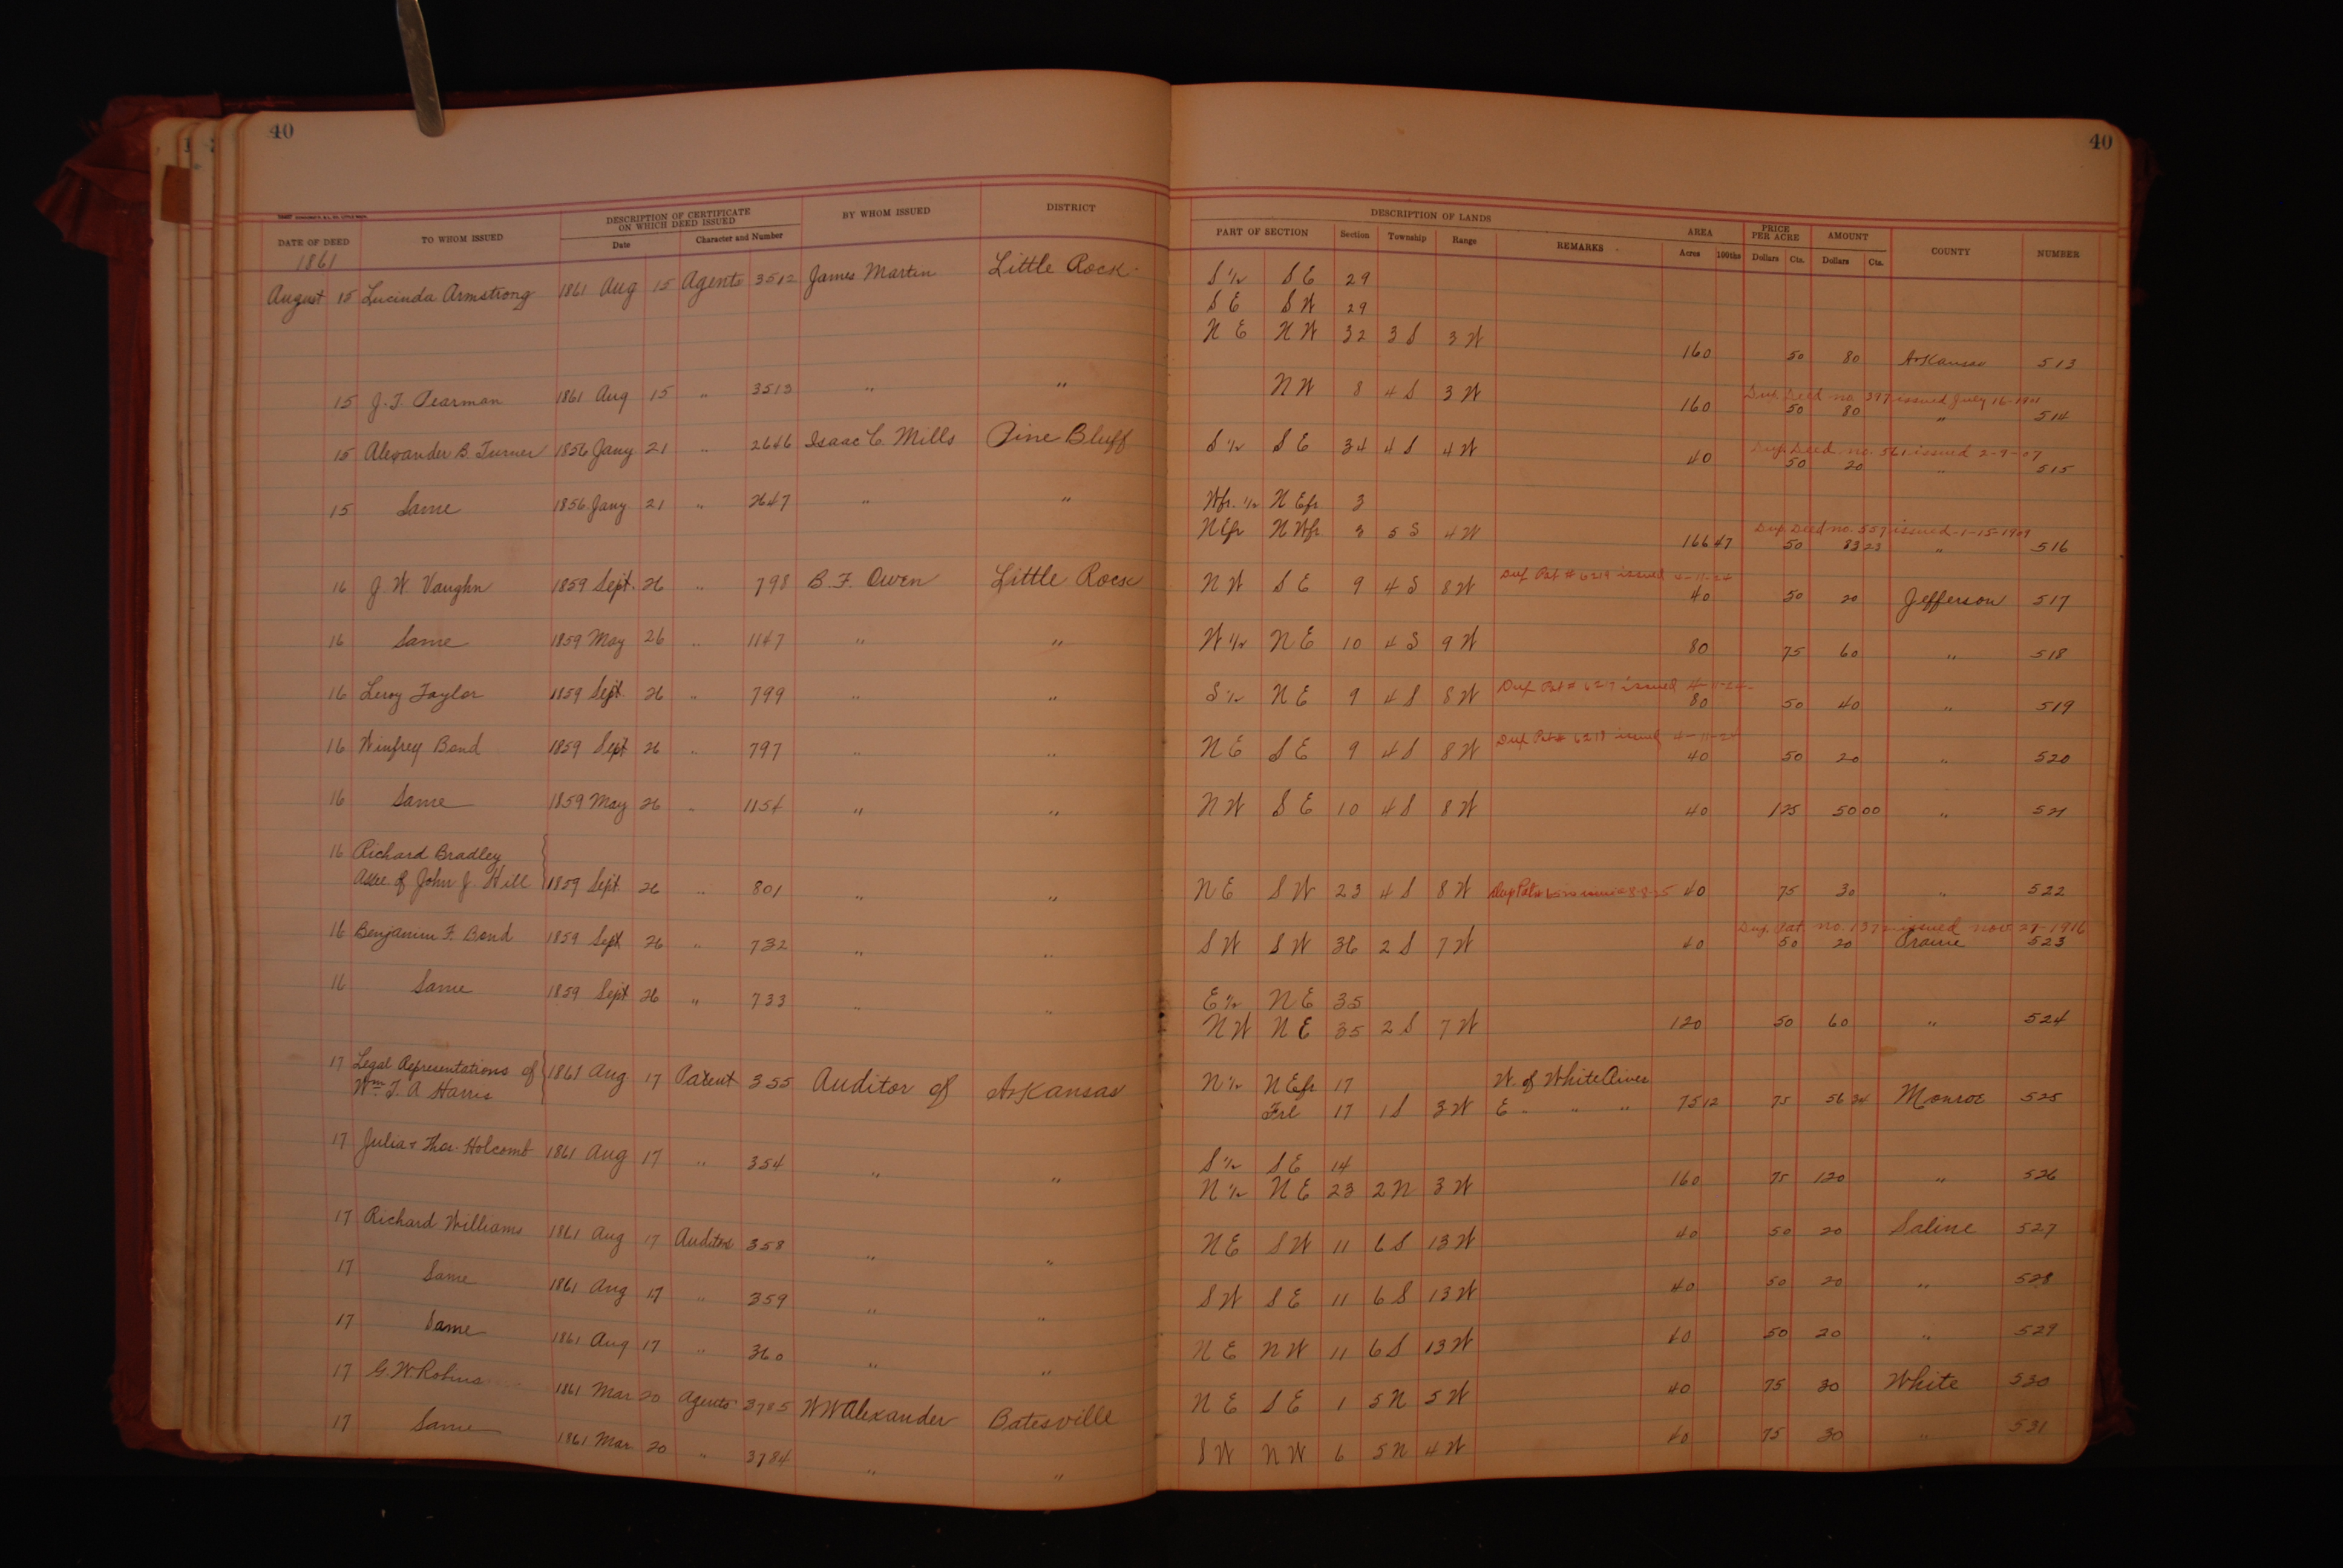 40
40
DATE OF DEED TO WHOM ISSUED DESCRIPTION OF CERTIFICATE ON WHICH DEED ISSUED Date Character and Number BY WHOM ISSUED DISTRICT DESCRIPTION OF LANDS PART OF SECTION Section Township Range REMARKS AREA Acres 100ths PRICE PER ACRE Dollars Cts. AMOUNT Dollars Cts. COUNTY NUMBER
1861
August 15 Lucinda Armstrong 1861 Aug 15 Agents 3512 James Martin Little Rock S ½ S E 29
S E S W 29
N E N W 32 3 S 3 W 160 50 80 Arkansas 513
Dup. Deed no. 397 issued July 16-1901
15 J. T. Pearman 1861 Aug 15 " 3513 " " N W 8 4 S 3 W 160 50 80 " 514
Dup. Deed no. 561 issued 2-9-07
15 Alexander B. Turner 1856 Jany 21 " 2646 Isaac C. Mills Pine Bluff S ½ S E 34 4 S 4 W 40 50 20 " 515
15 Same 1856 Jany 21 " 2647 " " Wfr. ½ N Efr 3
Dup. Deed no. 557 issued 1-15-1907
NEfr N Wfr. 3 5 S 4 W 166 47 50 83 23 " 516
Dup Pat # 6219 issued 4-11-24
16 J. W. Vaughn 1859 Sept. 26 " 798 B. F. Owen Little Rock N W S E 9 4 S 8 W 40 50 20 Jefferson 517
16 Same 1859 May 26 " 1147 " " W ½ N E 10 4 S 9 W 80 75 60 " 518
Dup Pat # issued 4-11-24
16 Leroy Taylor 1859 Sept 26 " 799 " " S ½ N E 9 4 S 8 W 80 50 40 " 519
Dup Pat # 6218 issued 4-11-24
16 Winfrey Bond 1859 Sept 26 " 797 " " N E S E 9 4 S 8 W 40 50 20 " 520
16 Same 1859 May 26 " 1154 " " N W S E 10 4 S 8 W 40 1 25 50 00 " 521
16 Richard Bradley
Assee. of John J. Hill 1859 Sept 26 " 801 " " N E S W 23 4 S 8 W Dup Pat 40 75 30 " 522
Dup. Pat no. 1372 issued nov 27-1916
16 Benjamin F. Bond 1859 Sept 26 " 732 " " S W S W 36 2 S 7 W 40 50 20 Prairie 523
16 Same 1859 Sept 26 " 733 " " E ½ N E 35
N W N E 35 2 S 7 W 120 50 60 " 524
17 Legal Representations of 1861 Aug 17 Patent 355 Auditor of Arkansas N ½ N Efr 17 W. of White River
Wm T. A Harris Frl 17 1 S 3 W E " " " 75 12 75 56 34 Monroe 525
17 Julia & Thos. Holcomb 1861 Aug 17 " 354 " " S ½ S E 14
N ½ N E 23 2 N 3 W 160 75 120 " 526
17 Richard Williams 1861 Aug 17 Auditors 358 " " N E S W 11 6 S 13 W 40 50 20 Saline 527
17 Same 1861 Aug 17 " 359 " " S W S E 11 6 S 13 W 40 50 20 " 528
17 Same 1861 Aug 17 " 360 " " N E N W 11 6 S 13 W 40 50 20 " 529
17 G. W. Robins 1861 Mar 20 Agents 3785 W W Alexander Batesville N E S E 1 5 N 5 W 40 75 30 White 530
17 Same 1861 Mar 20 " 3784 " " S W N W 6 5 N 4 W 40 75 30 " 531